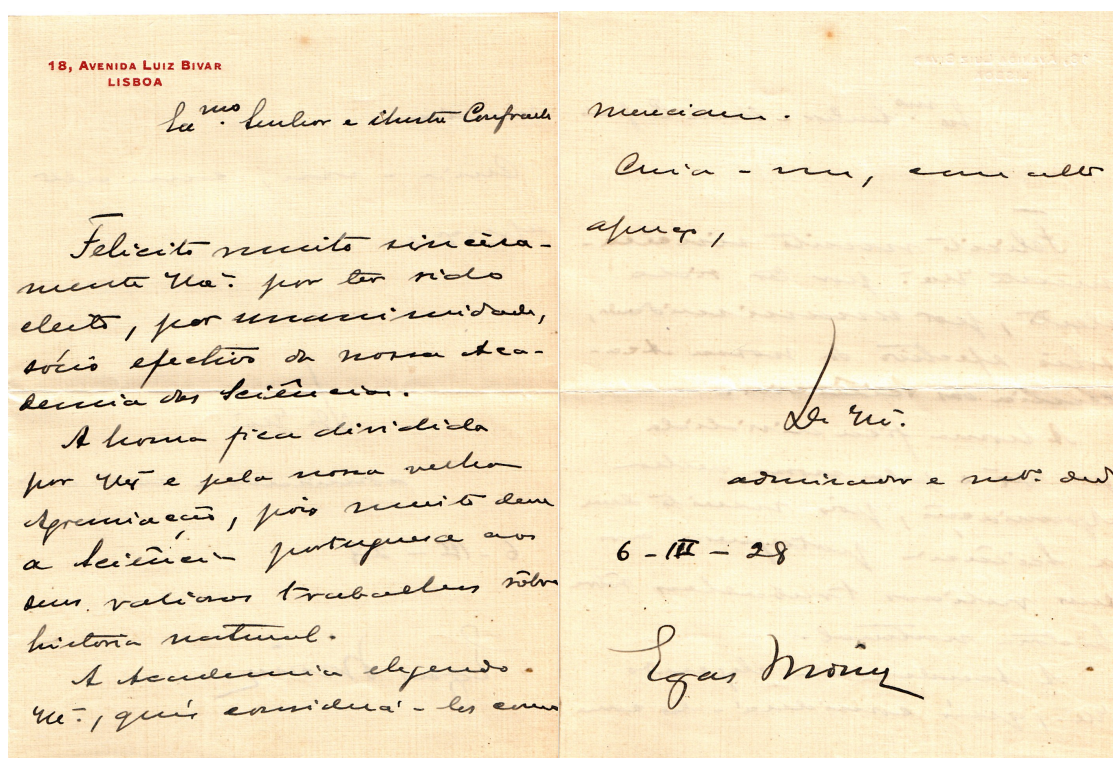 18, AVENIDA LUIZ BIVAR
LISBOA
Ex.mo Senhor e ilustre Confrade
Felicito muito sincéra-
mente V.Ex.ª por ter sido
eleito, por unanimidade,
sócio efectivo da nossa Aca-
demia das Sciências.
A honra fica dividida
por V.Ex.ª e pela nossa velha
Agremiação, pois muito deve
a Sciência portuguesa aos
seus valiosos trabalhos sôbre
historia natural.
A Academia elegendo
V.Ex.ª, quis considerá-los como
mereciam.
Creia-me, com alto
apreço,
De V.Ex.ª
admirador e mt.º ded
6-III-28
Egas Moniz